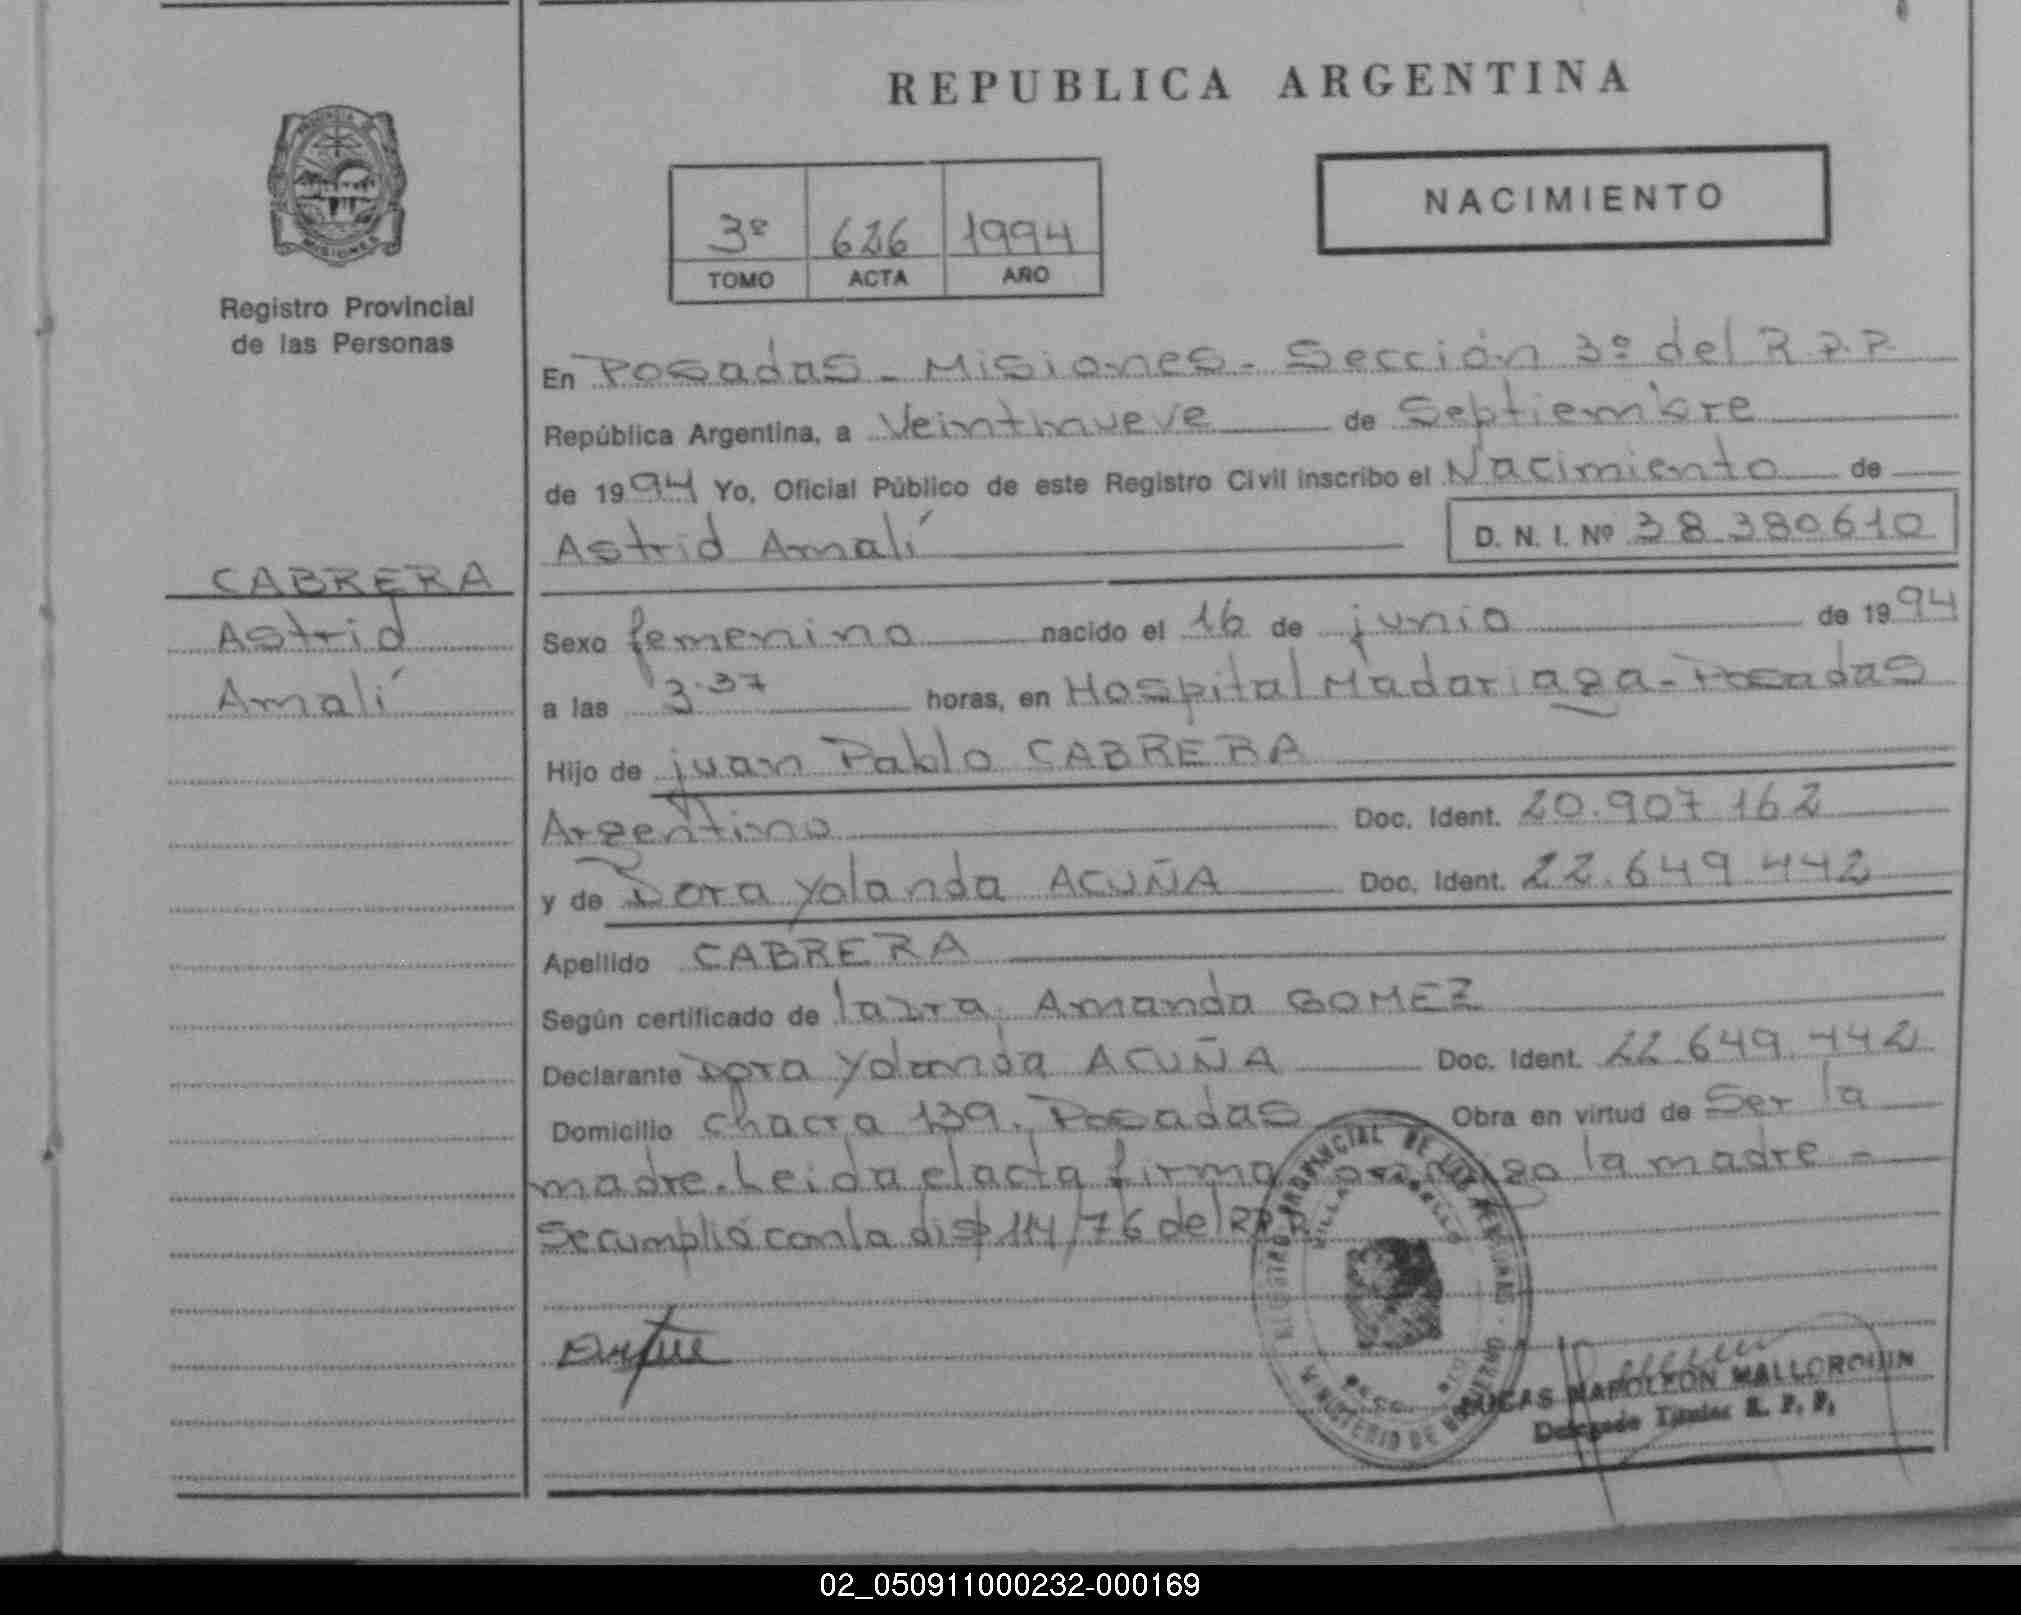 REPUBLICA ARGENTINA
PROVINCIA DE
MISIONES
Registro Provincial
de las Personas
3º 626 1994
TOMO ACTA AÑO
NACIMIENTO
En Posadas - Misiones - Sección 3º del R.P.P.
República Argentina, a Veintinueve de Septiembre
de 1994 Yo, Oficial Público de este Registro Civil inscribo el Nacimiento de
Astrid Amalí D. N. I. Nº 38.380610
CABRERA
Astrid
Amalí
Sexo femenino nacido el 16 de junio de 1994
a las 3.37 horas, en Hospital Madariaga - Posadas
Hijo de juan Pablo CABRERA
Argentino Doc. Ident. 20.907.162
y de Dora Yolanda ACUÑA Doc. Ident. 22.649.442
Apellido CABRERA
Según certificado de la Dra. Amanda GOMEZ
Declarante Dora Yolanda ACUÑA Doc. Ident. 22.649.442
Domicilio chacra 139. Posadas Obra en virtud de Ser la
madre. Leida el acta firma conmigo la madre -
Se cumplió con la disp 114/76 del R.P.P.
REGISTRO PROVINCIAL DE LAS PERSONAS
MINISTERIO DE GOBIERNO
LUCAS NAPOLEON MALLORQUIN
Delegado Titular R. P. P.
02_050911000232-000169